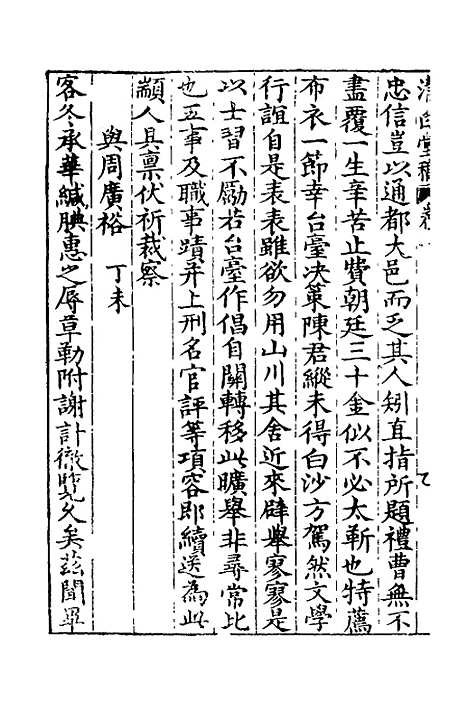 清白堂稿 卷
忠信豈以通都大邑而乏其人矧直指所題禮曹無不
盡覆一生辛苦止費朝廷三十金似不必太靳也特薦
布衣一節幸台臺决策陳君縱未得白沙方駕然文學
行誼自是表表雖欲勿用山川其舍近來辟舉寥寥是
以士習不勵若台臺作倡自關轉移此曠舉非尋常比
也五事及職事蹟并上刑名官評等項容即續送為此
顓人具禀伏祈裁察
與周廣裕 丁未
客冬承華緘腆惠之辱草勒附謝計徹覽久矣茲聞畢